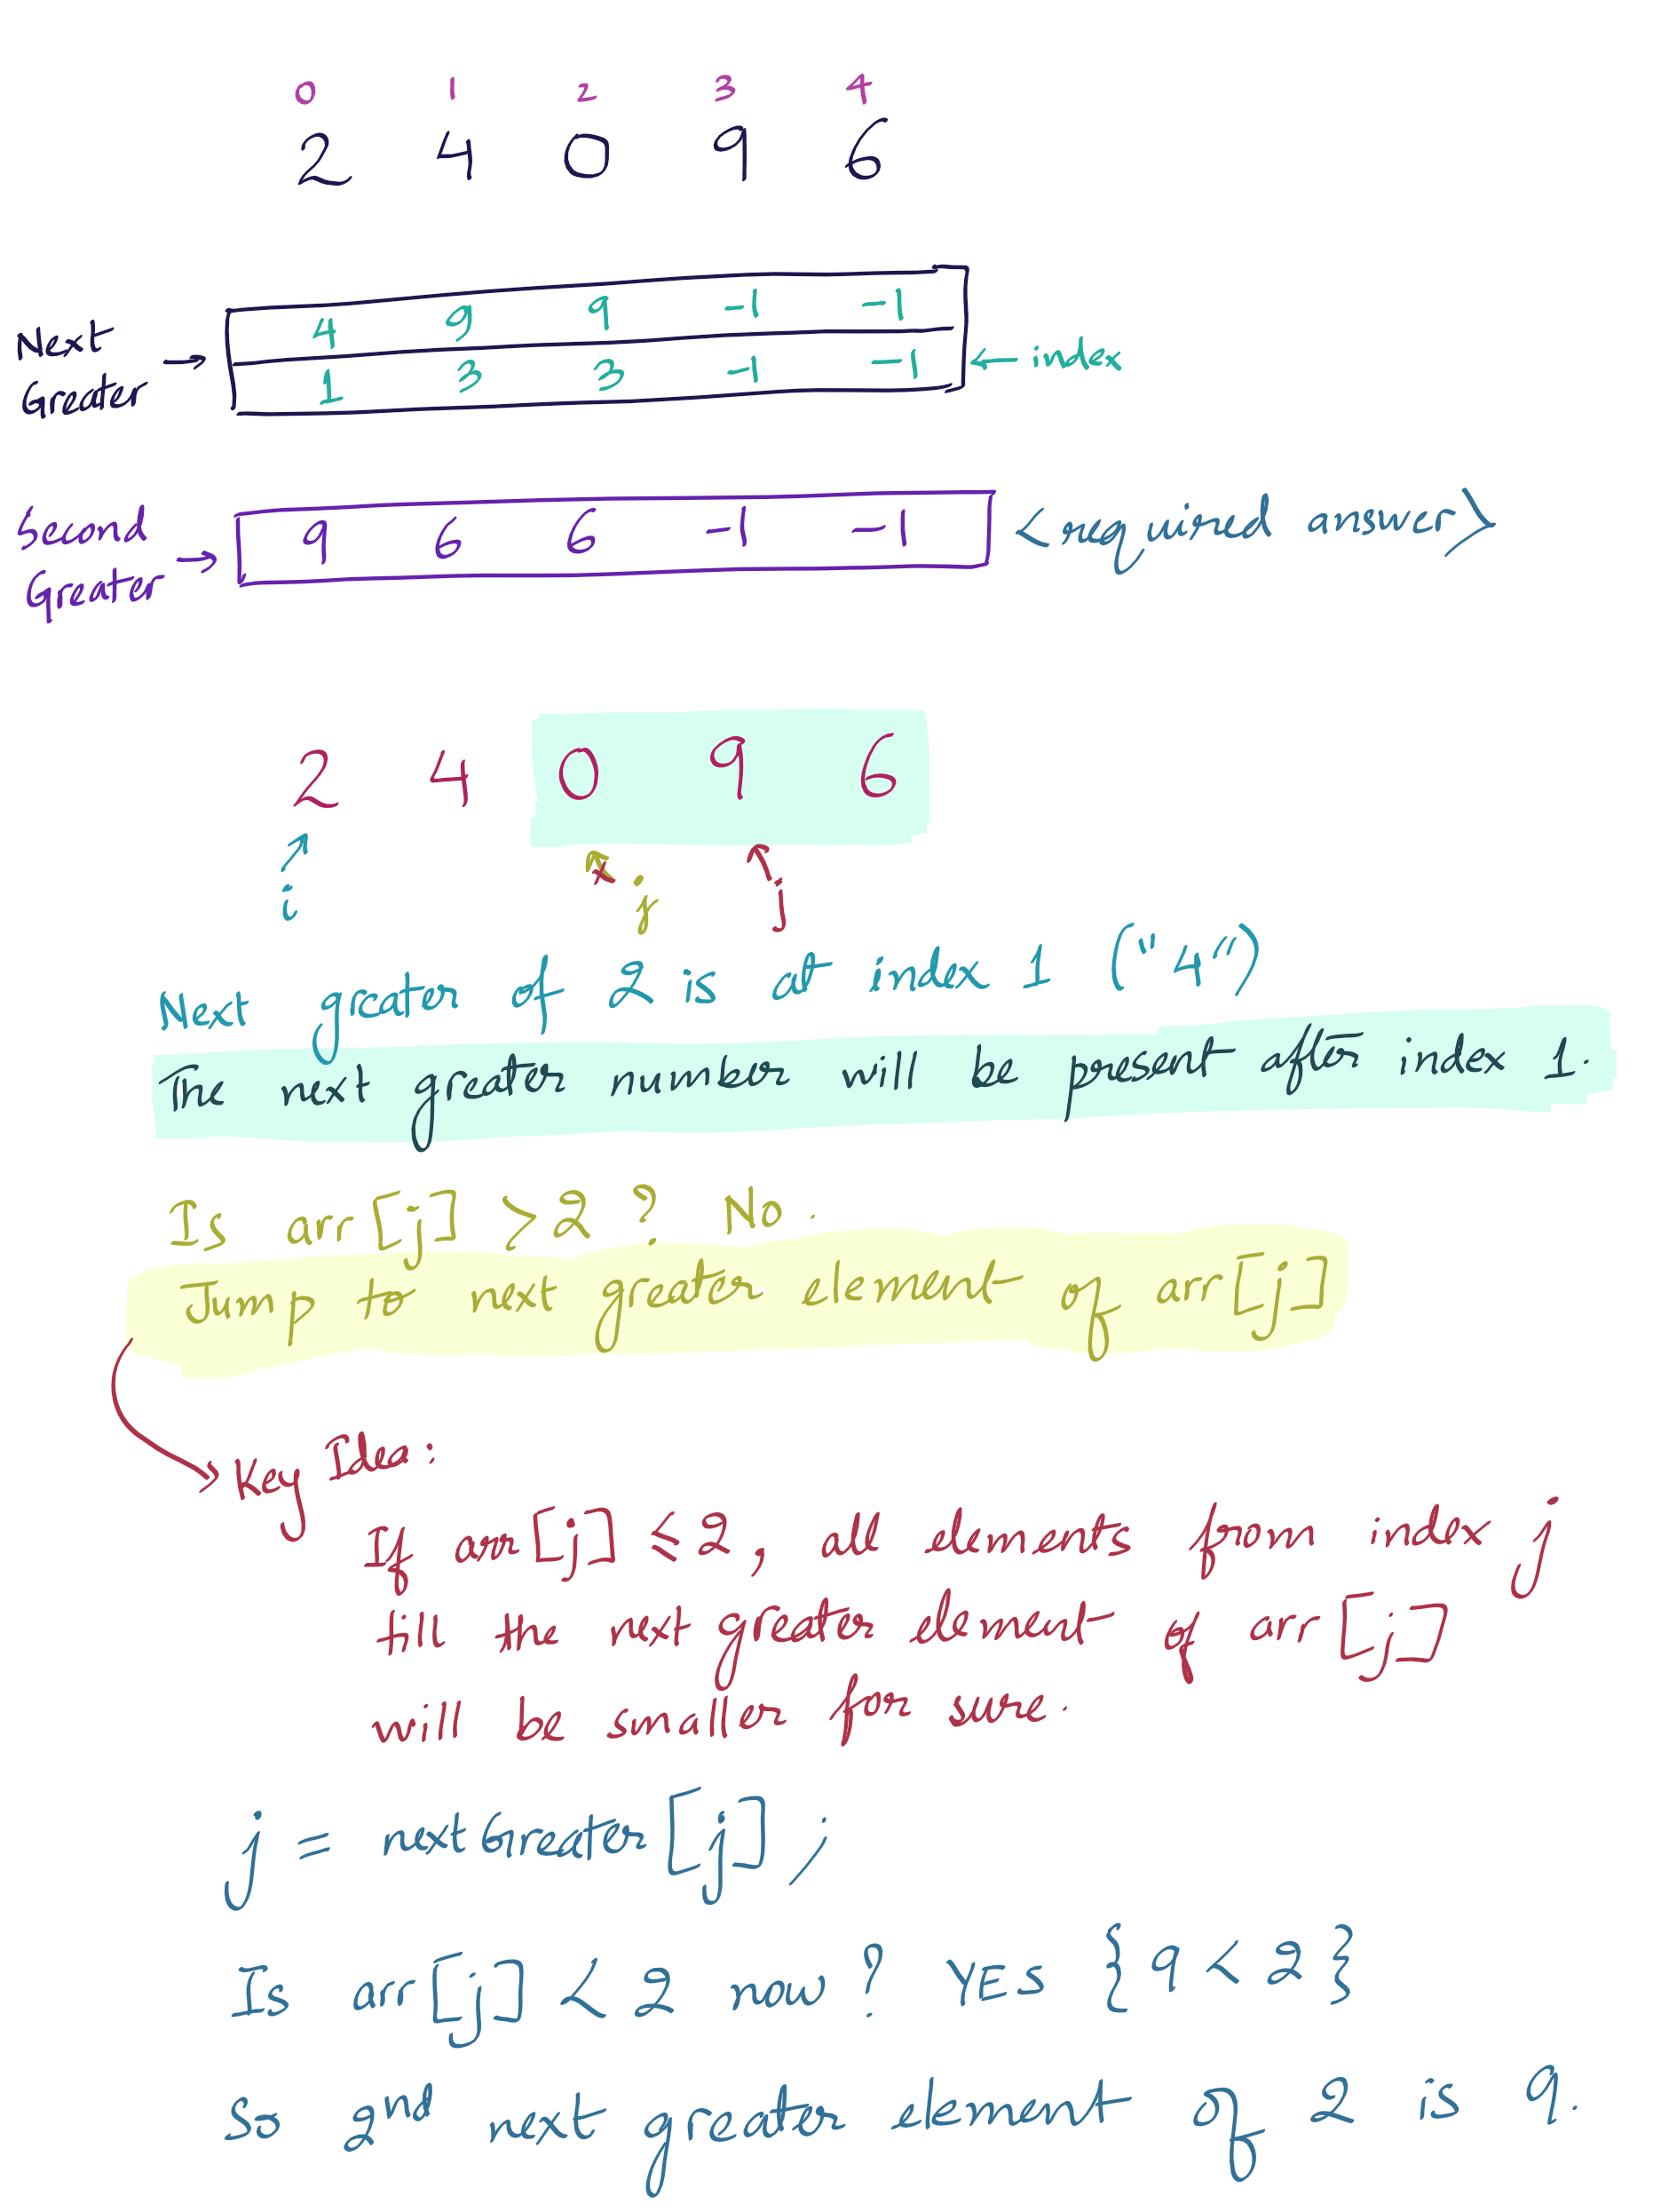 0 1 2 3 4
2 4 0 9 6
Next Greater → 4 9 9 -1 -1
1 3 3 -1 -1 ← index
Second Greater → 9 6 6 -1 -1 <required answer>
2 4 0 9 6
i x j j
Next greater of 2 is at index 1 ("4")
The next greater number will be present after index 1.
Is arr[j] > 2 ? No.
Jump to next greater element of arr[j]
→ Key Idea:
If arr[j] ≤ 2, all elements from index j
till the next greater element of arr[j]
will be smaller for sure.
j = nextGreater[j];
Is arr[j] < 2 now? YES {9 < 2}
So 2nd next greater element of 2 is 9.